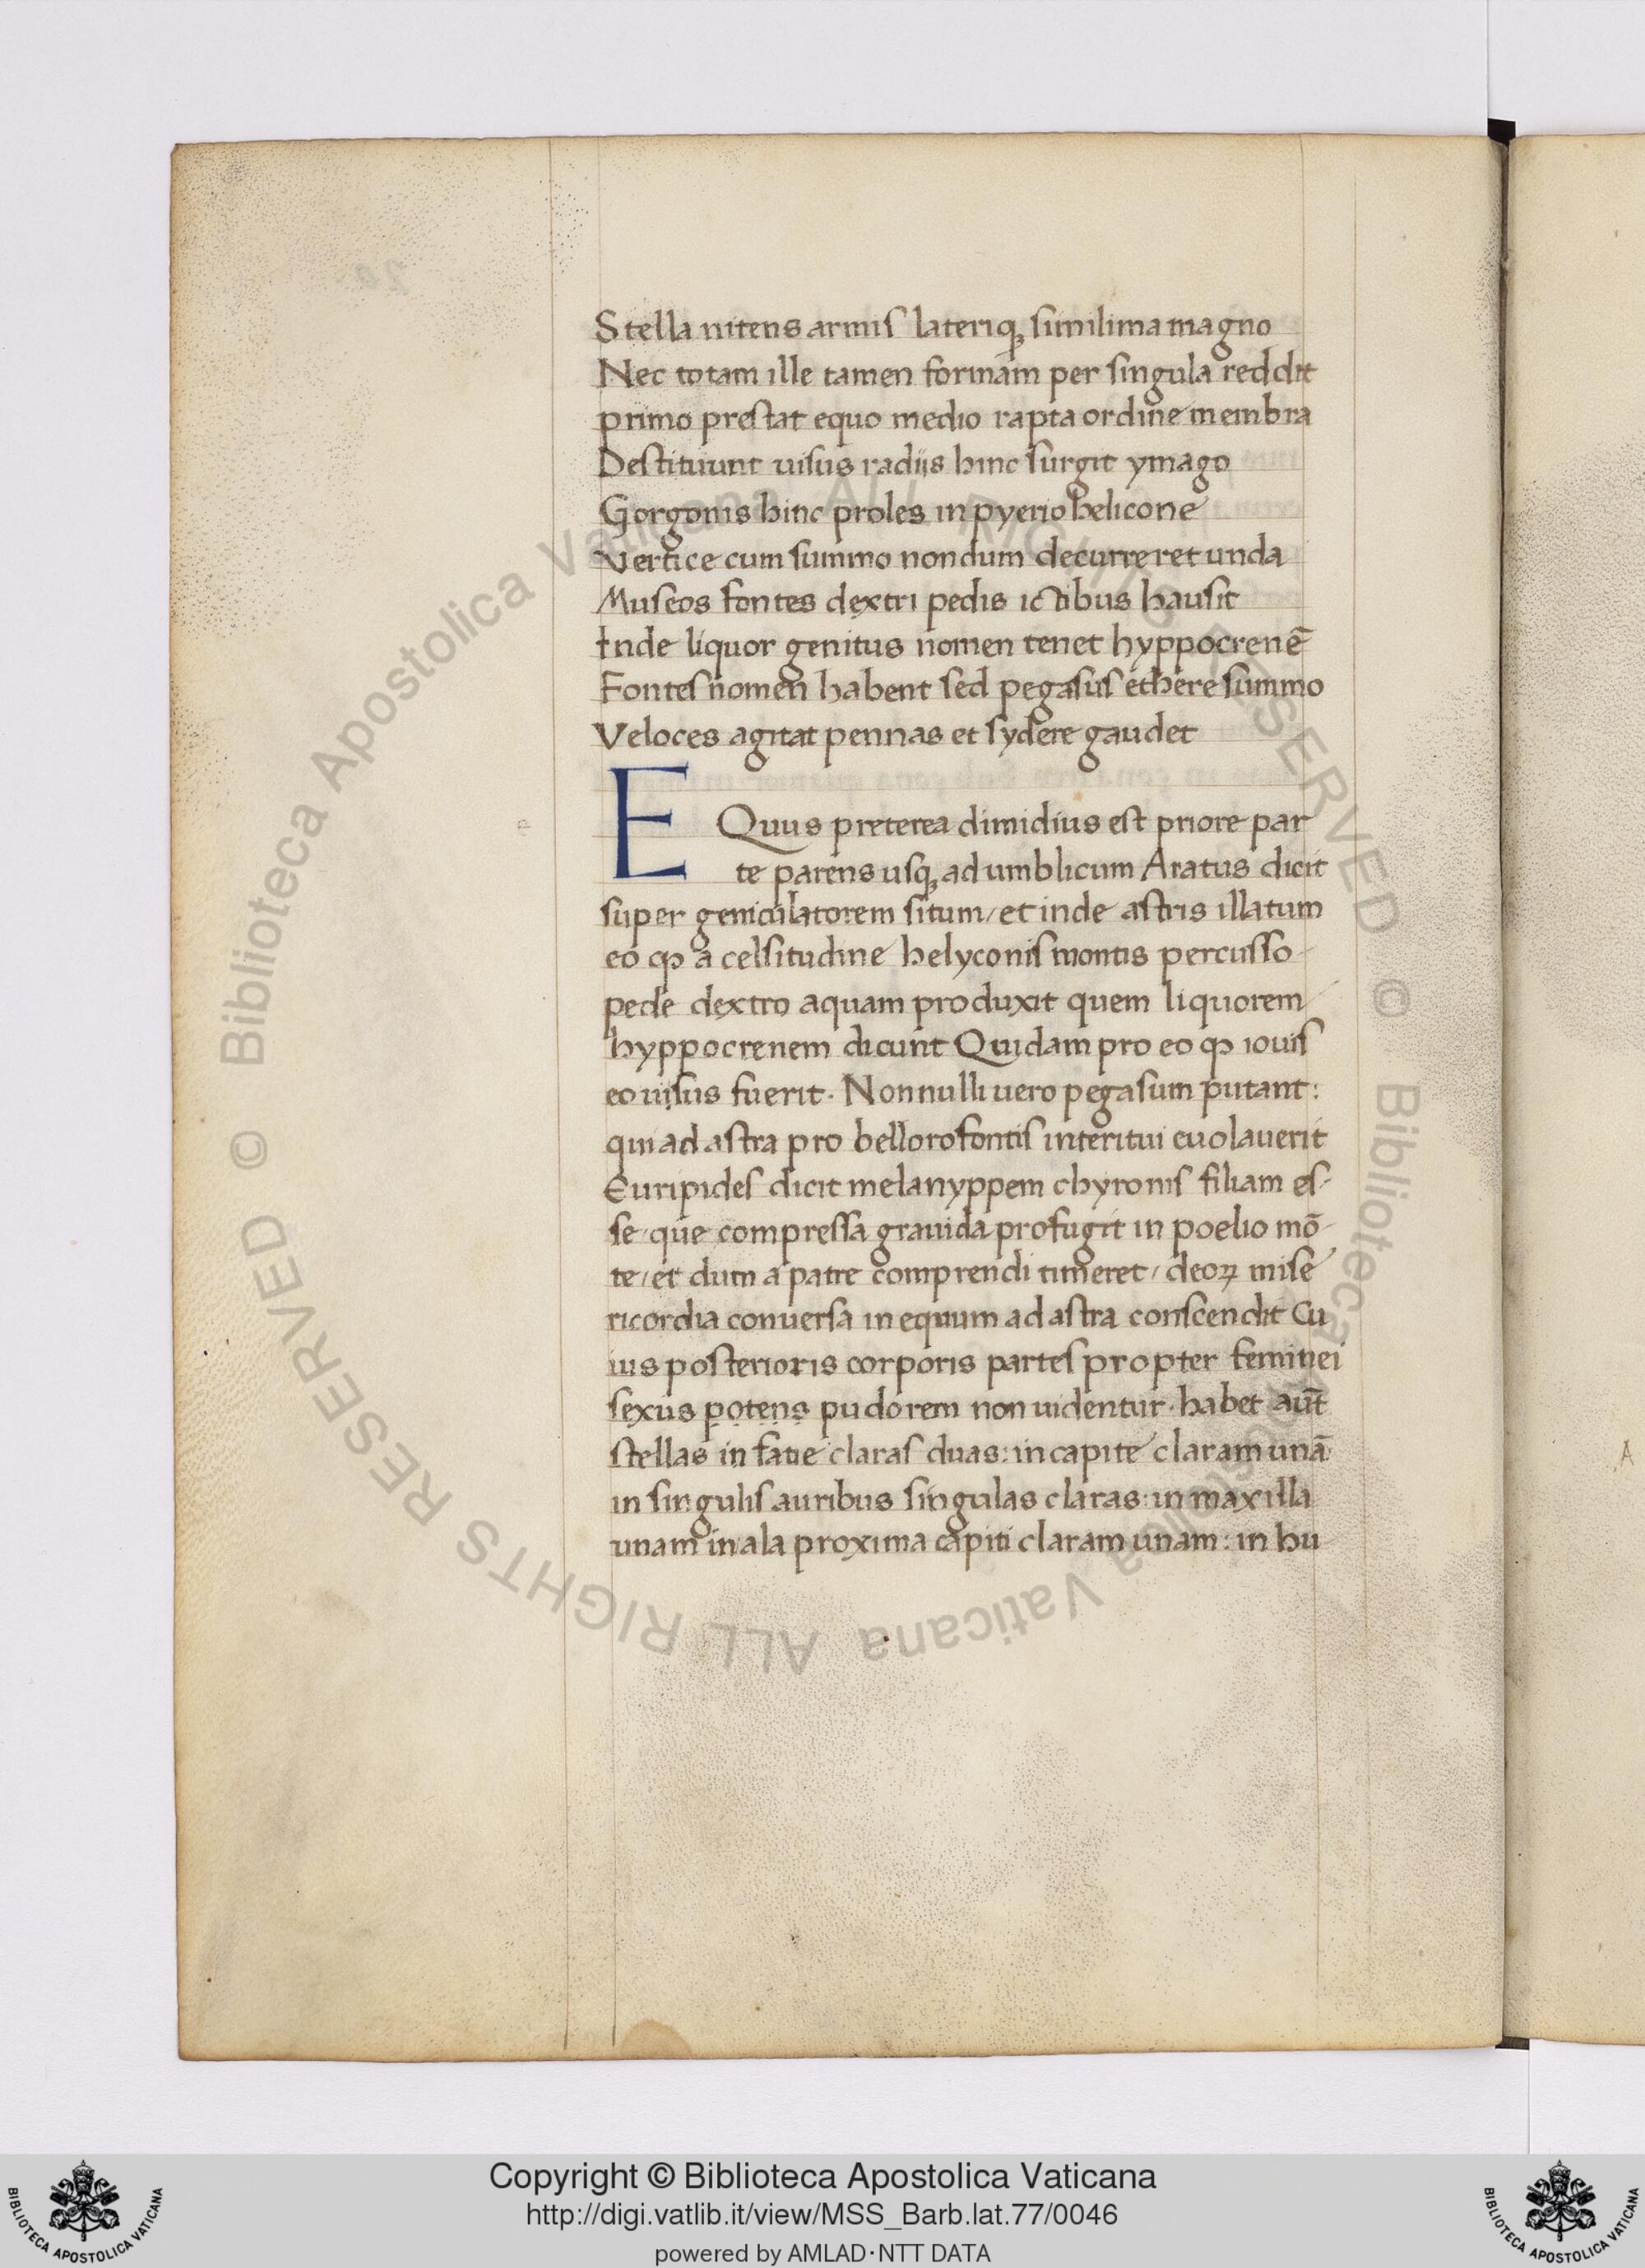 Stella nitens armis lateriq, similima magno
Nec totam ille tamen formam per singula reddit
primo prestat equo medio rapta ordine membra
Destituunt uisus radiis hinc surgit ymago
Gorgonis hinc proles in pyerio helicone
Vertice cum summo nondum decurreret unda
Museos fontes dextri pedis ictibus hausit
Inde liquor genitus nomen tenet hyppocrenē
Fontes nomen habent sed pegasus ethere summo
Veloces agitat pennas et sydere gaudet
EQuus preterea dimidius est priore par
te parens usq, ad umblicum Aratus dicit
super geniculatorem situm / et inde astris illatum
eo ꝙ a celsitudine helyconis montis percusso
pede dextro aquam produxit quem liquorem
hyppocrenem dicunt Quidam pro eo ꝙ iouis
eo uisus fuerit. Nonnulli uero pegasum putant:
qui ad astra pro bellorofontis interitui euolauerit
Euripides dicit melanyppem chyronis filiam es-
se / que compressa grauida profugit in poelio mō
te / et dum a patre comprendi timeret / deoꝝ mise
ricordia conuersa in equum ad astra conscendit Cu
ius posterioris corporis partes propter feminei
sexus potens pudorem non uidentur. habet aut̄
stellas in fatie claras duas: in capite claram unā
in singulis auribus singulas claras: in maxilla
unam in ala proxima capiti claram unam: in hu
e
A
© Biblioteca Apostolica Vaticana ALL RIGHTS RESERVED © Biblioteca Apostolica Vaticana ALL RIGHTS RESERVED
Copyright © Biblioteca Apostolica Vaticana
http://digi.vatlib.it/view/MSS_Barb.lat.77/0046
powered by AMLAD·NTT DATA
BIBLIOTECA APOSTOLICA VATICANA
BIBLIOTECA APOSTOLICA VATICANA